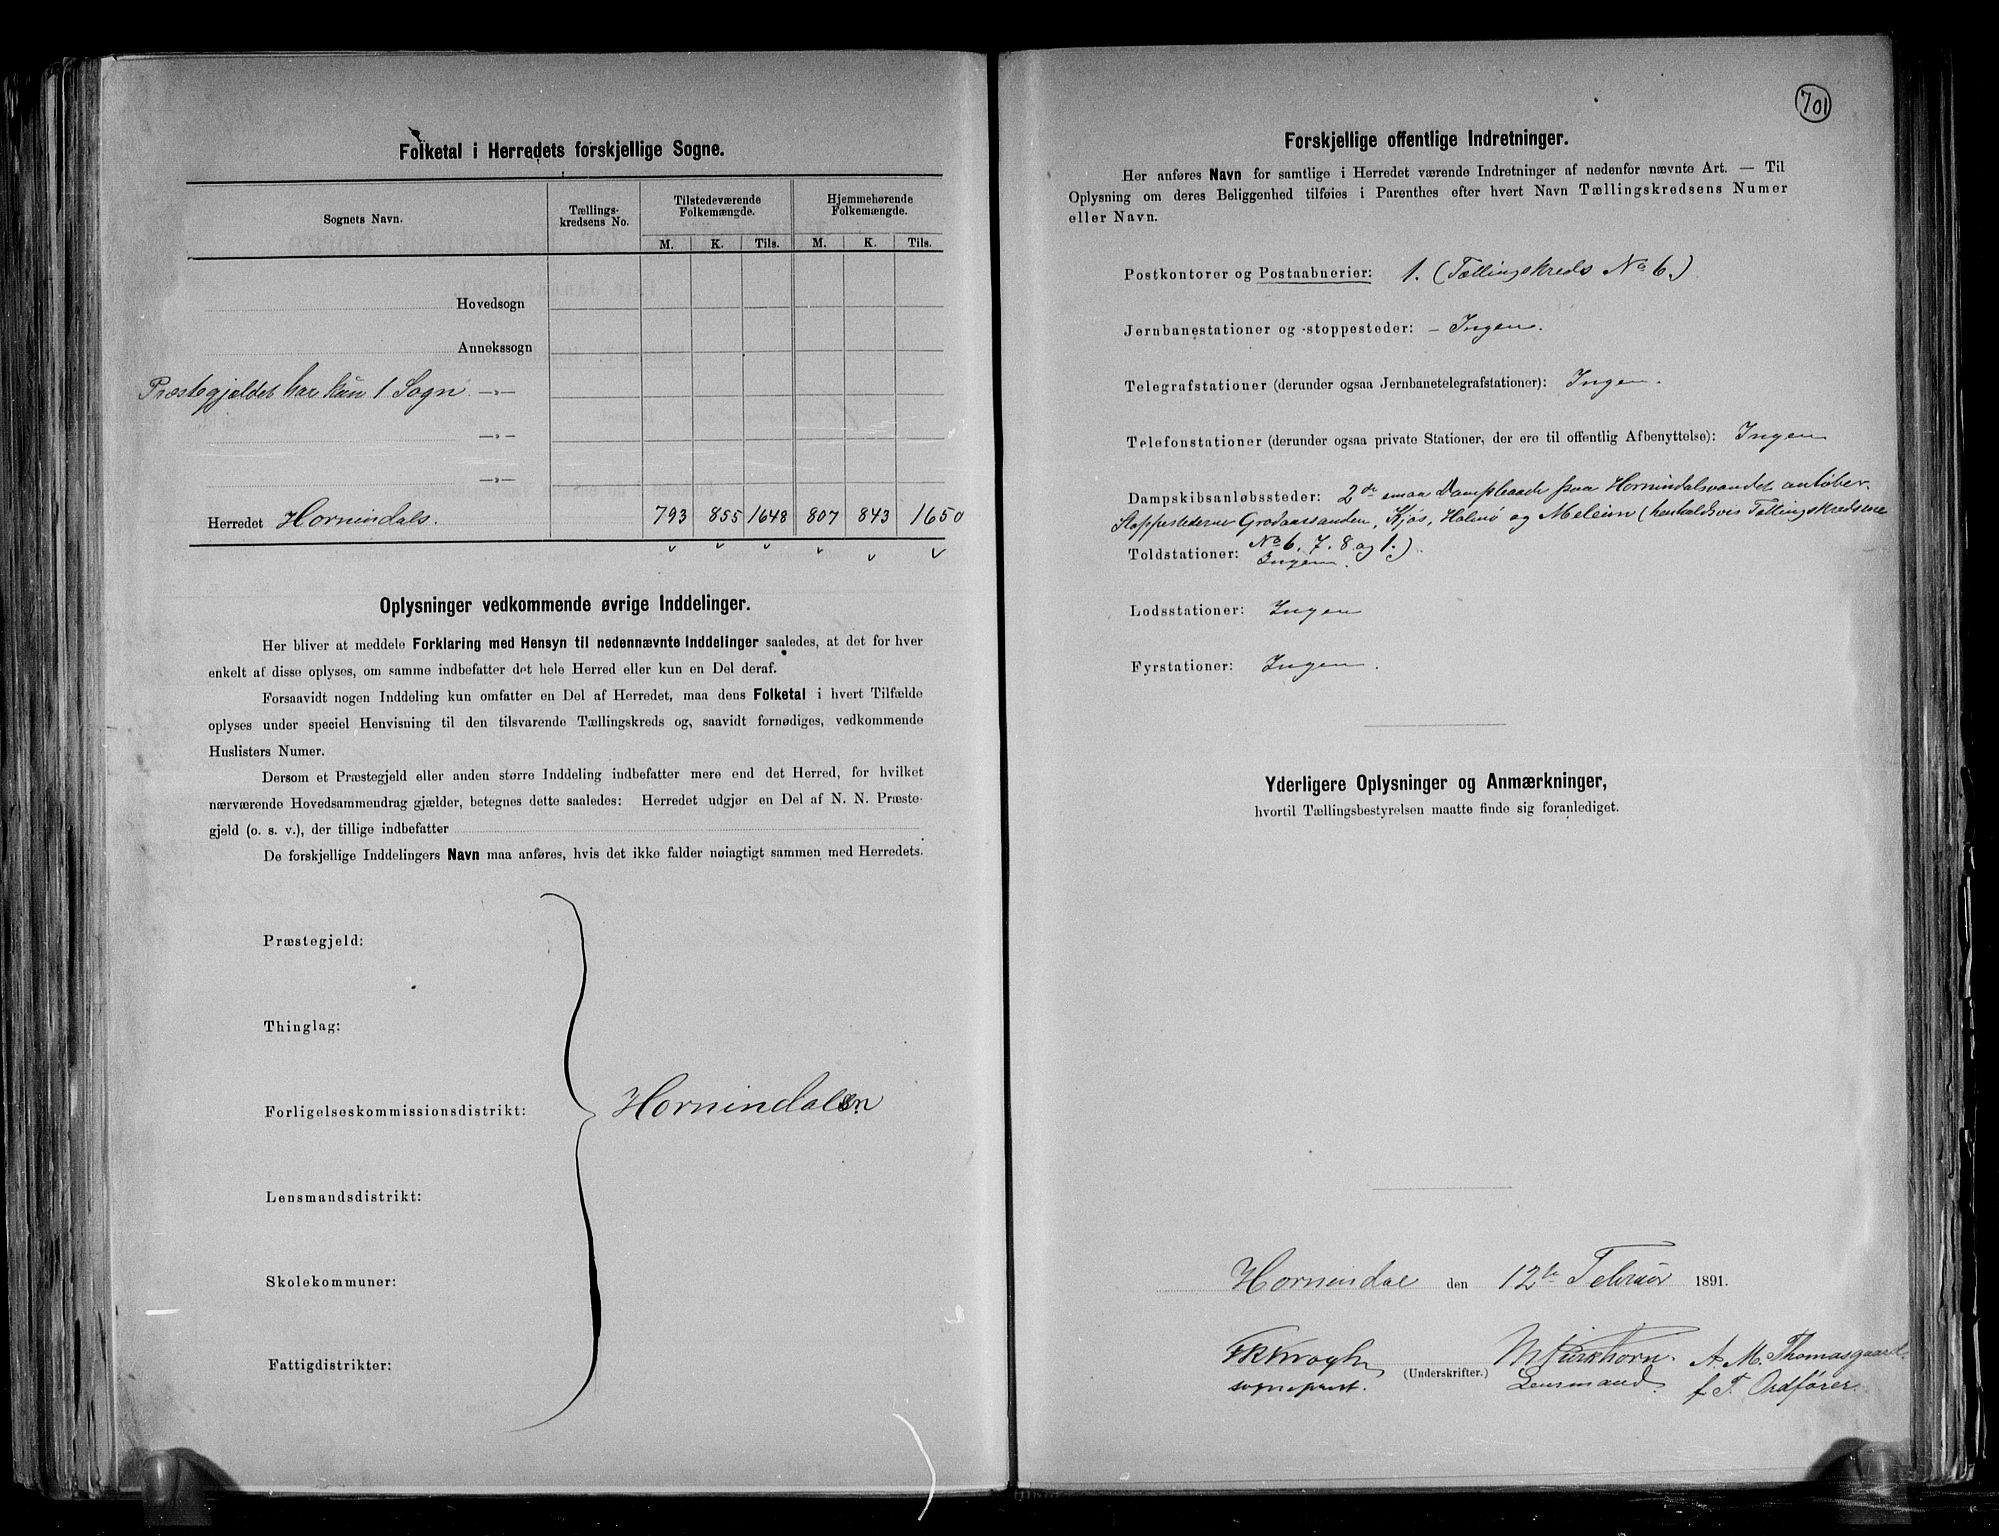 Folketal i Herredets forskjellige Sogne.
Sognets Navn.
Tællings-
kredsens No.
Tilstedeværende
Folkemængde.
Hjemmehørende
Folkemængde.
M. K. Tils. M. K. Tils.
Hovedsogn
Annekssogn
Præstegjældet har kun 1 Sogn —»—
—»—
—»—
Herredet Hornindals. 793 855 1648 807 843 1650
Oplysninger vedkommende øvrige Inddelinger.
Her bliver at meddele Forklaring med Hensyn til nedennævnte Inddelinger saaledes, at det for hver
enkelt af disse oplyses, om samme indbefatter det hele Herred eller kun en Del deraf.
Forsaavidt nogen Inddeling kun omfatter en Del af Herredet, maa dens Folketal i hvert Tilfælde
oplyses under speciel Henvisning til den tilsvarende Tællingskreds og, saavidt fornødiges, vedkommende
Huslisters Numer.
Dersom et Præstegjeld eller anden større Inddeling indbefatter mere end det Herred, for hvilket
nærværende Hovedsammendrag gjælder, betegnes dette saaledes: Herredet udgjør en Del af N. N. Præste-
gjeld (o. s. v.), der tillige indbefatter
De forskjellige Inddelingers Navn maa anføres, hvis det ikke falder nøiagtigt sammen med Herredets.
Præstegjeld:
Thinglag:
Forligelseskommissionsdistrikt:
Lensmandsdistrikt:
Skolekommuner:
Fattigdistrikter:
701
Forskjellige offentlige Indretninger.
Her anføres Navn for samtlige i Herredet værende Indretninger af nedenfor nævnte Art. — Til
Oplysning om deres Beliggenhed tilføies i Parenthes efter hvert Navn Tællingskredsens Numer
eller Navn.
Postkontorer og Postaabnerier: 1. (Tællingskreds No 6.)
Jernbanestationer og -stoppesteder: – Ingen.
Telegrafstationer (derunder ogsaa Jernbanetelegrafstationer): Ingen.
Telefonstationer (derunder ogsaa private Stationer, der ere til offentlig Afbenyttelse): Ingen
Dampskibsanløbssteder: 2de smaa Dampbaade paa Hornindalsvandet anløber
Stoppestederne Grodaassanden, Kjøs, Holmø og (henholdsvis Tællingskredsene
No 6, 7, 8 og 1.)
Toldstationer: Ingen.
Lodsstationer: Ingen
Fyrstationer: Ingen.
Yderligere Oplysninger og Anmærkninger,
hvortil Tællingsbestyrelsen maatte finde sig foranlediget.
Hornindal den 12te Februar 1891.
Krogh (Underskrifter.) A. M. Thomasgaard.
sogneprest. Lensmand. f. T. Ordfører.